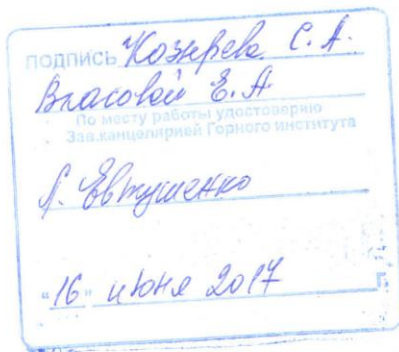 ПОДПИСЬ Козырева С. А.
Власовой Е. А
По месту работы удостоверяю
Зав.канцелярией Горного института
Л. Евтушенко
"16" июня 2017